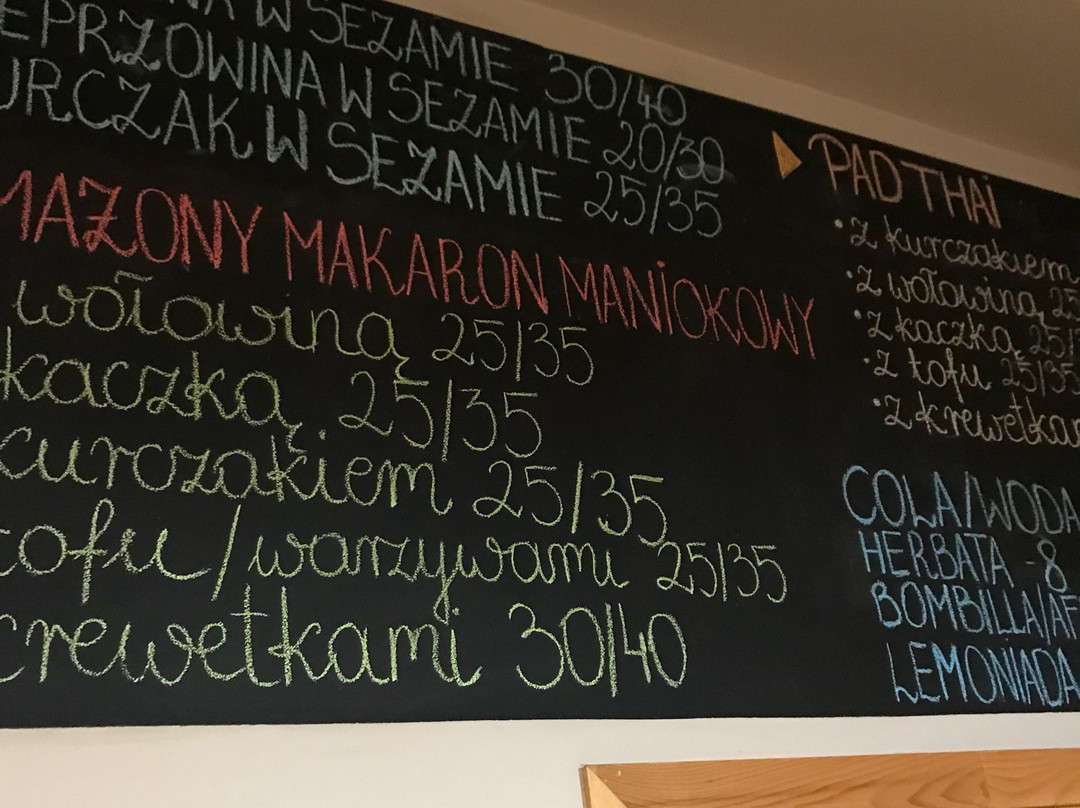 W SEZAMIE 30/40
EPRZOWINA W SEZAMIE 20/30
URCZAK W SEZAMIE 25/35
MAŻONY MAKARON MANIOKOWY
wołowiną 25/35
kaczką 25/35
kurczakiem 25/35
tofu/warzywami 25/35
krewetkami 30/40
PAD THAI
• z kurczakiem
• z wołowiną 25
• z kaczką 25/3
• z tofu 25/35
• z krewetkam
COLA/WODA
HERBATA - 8
BOMBILLA/AF
LEMONIADA